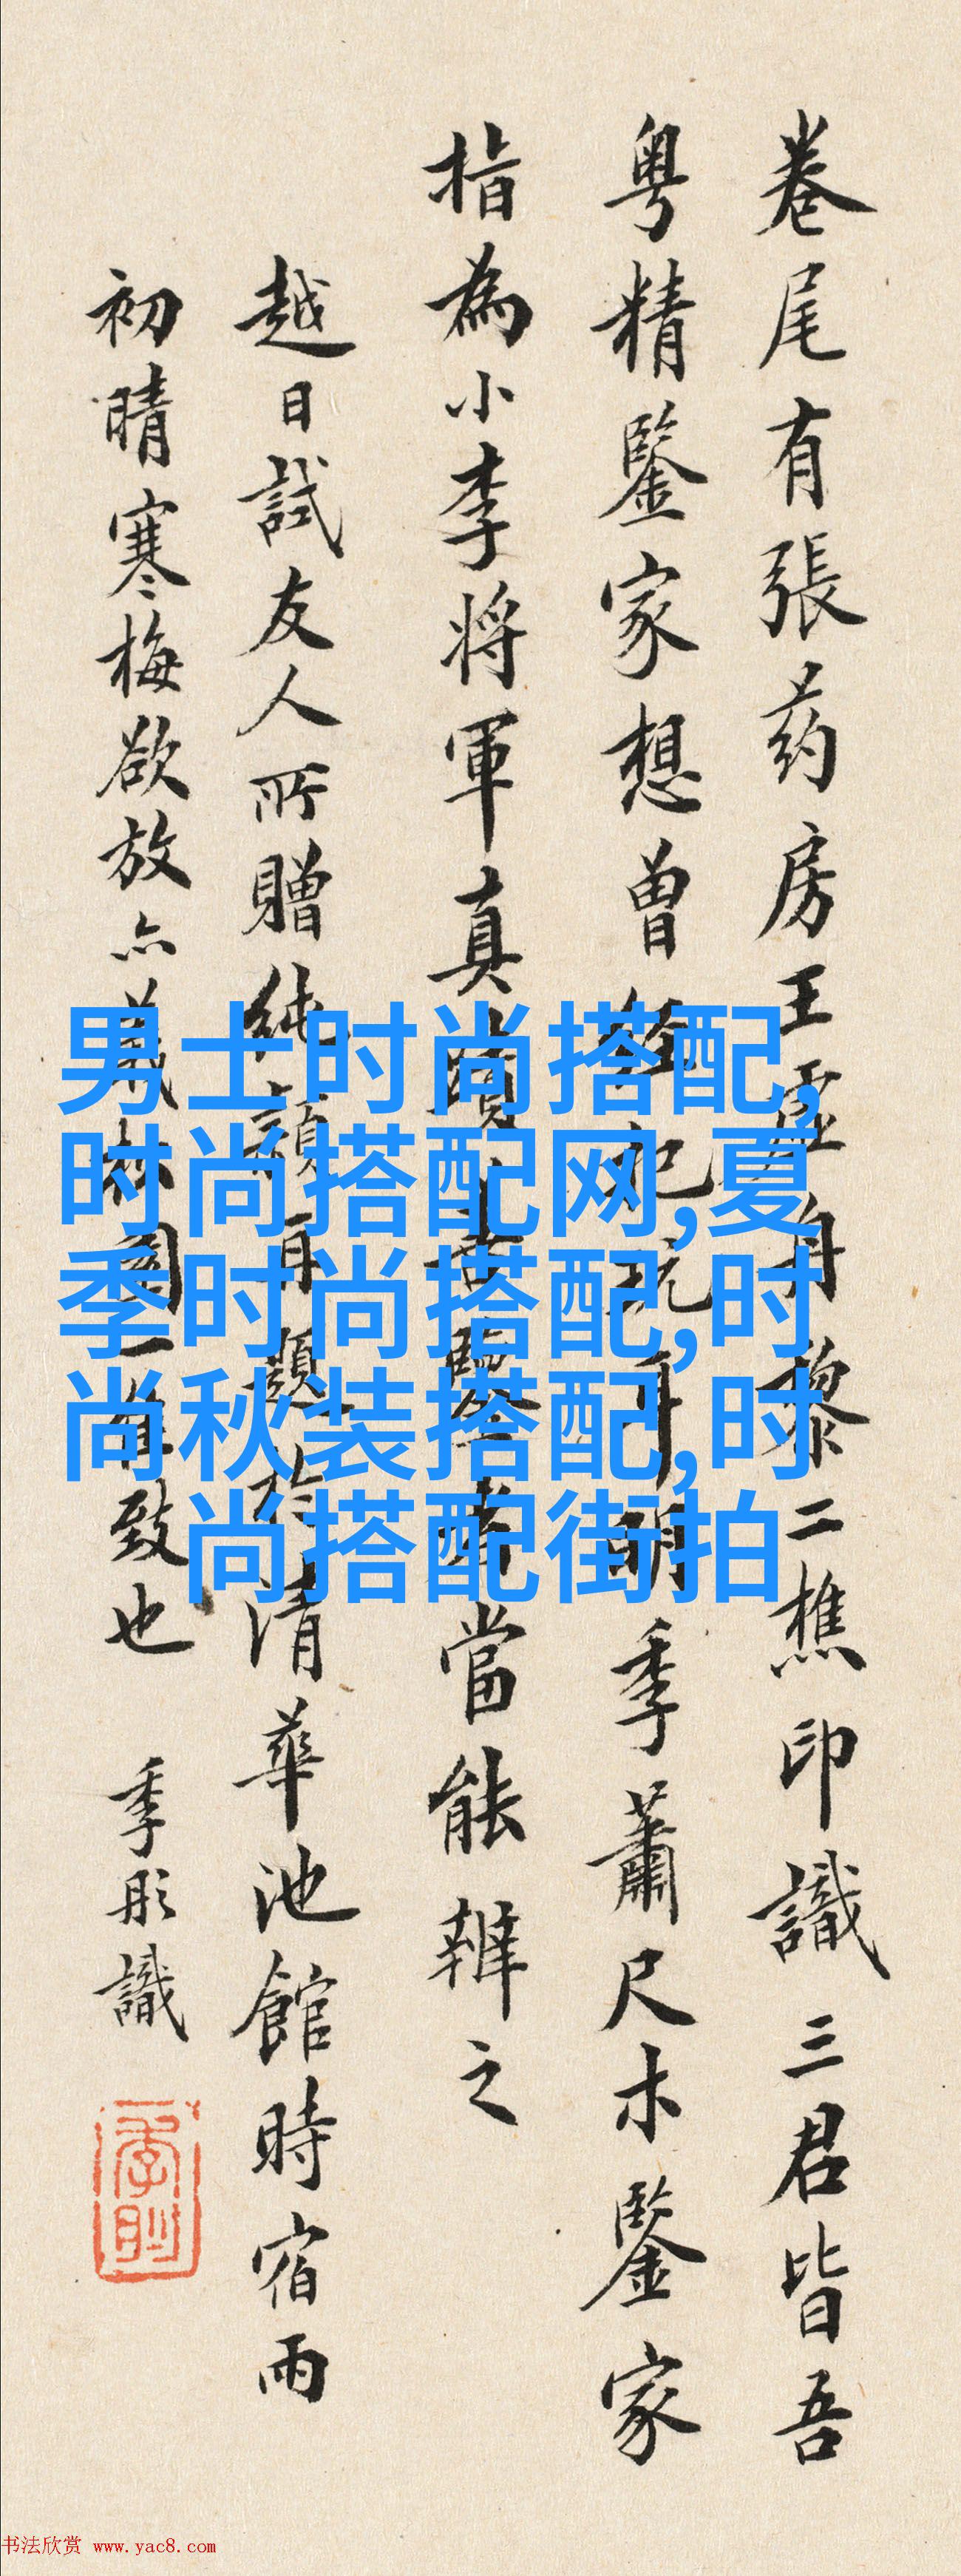 卷尾有張药房王虚舟黎二樵印識三君皆吾
粤精鑒家想曾明季蕭尺木鑒家
指為小李將軍真當能辨之
越日試友人所贈純清華池館時宿雨
初晴寒梅欲放亦致也 季彤識
男士时尚搭配,
时尚搭配网,夏
季时尚搭配,时
尚秋装搭配,时
尚搭配街拍
书法欣赏 www.yac8.com